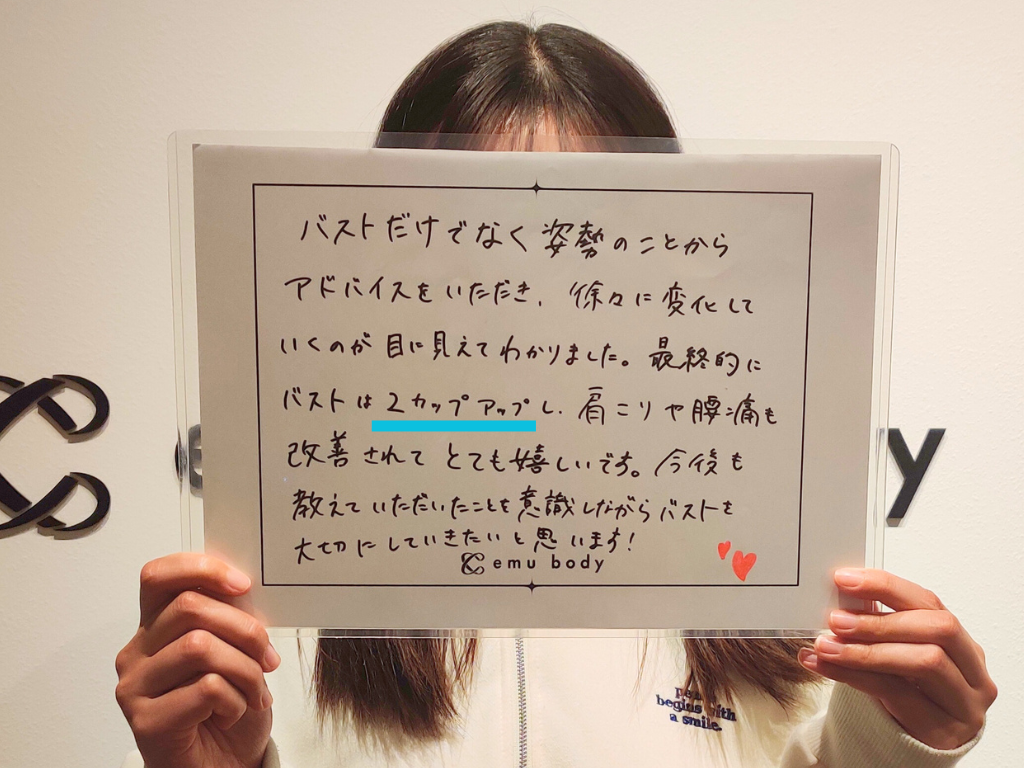 バストだけでなく姿勢のことから
アドバイスをいただき、徐々に変化して
いくのが目に見えてわかりました。最終的に
バストは2カップアップし、肩こりや腰痛も
改善されてとても嬉しいです。今後も
教えていただいたことを意識しながらバストを
大切にしていきたいと思います!
emu body
y
begins with
a smile.